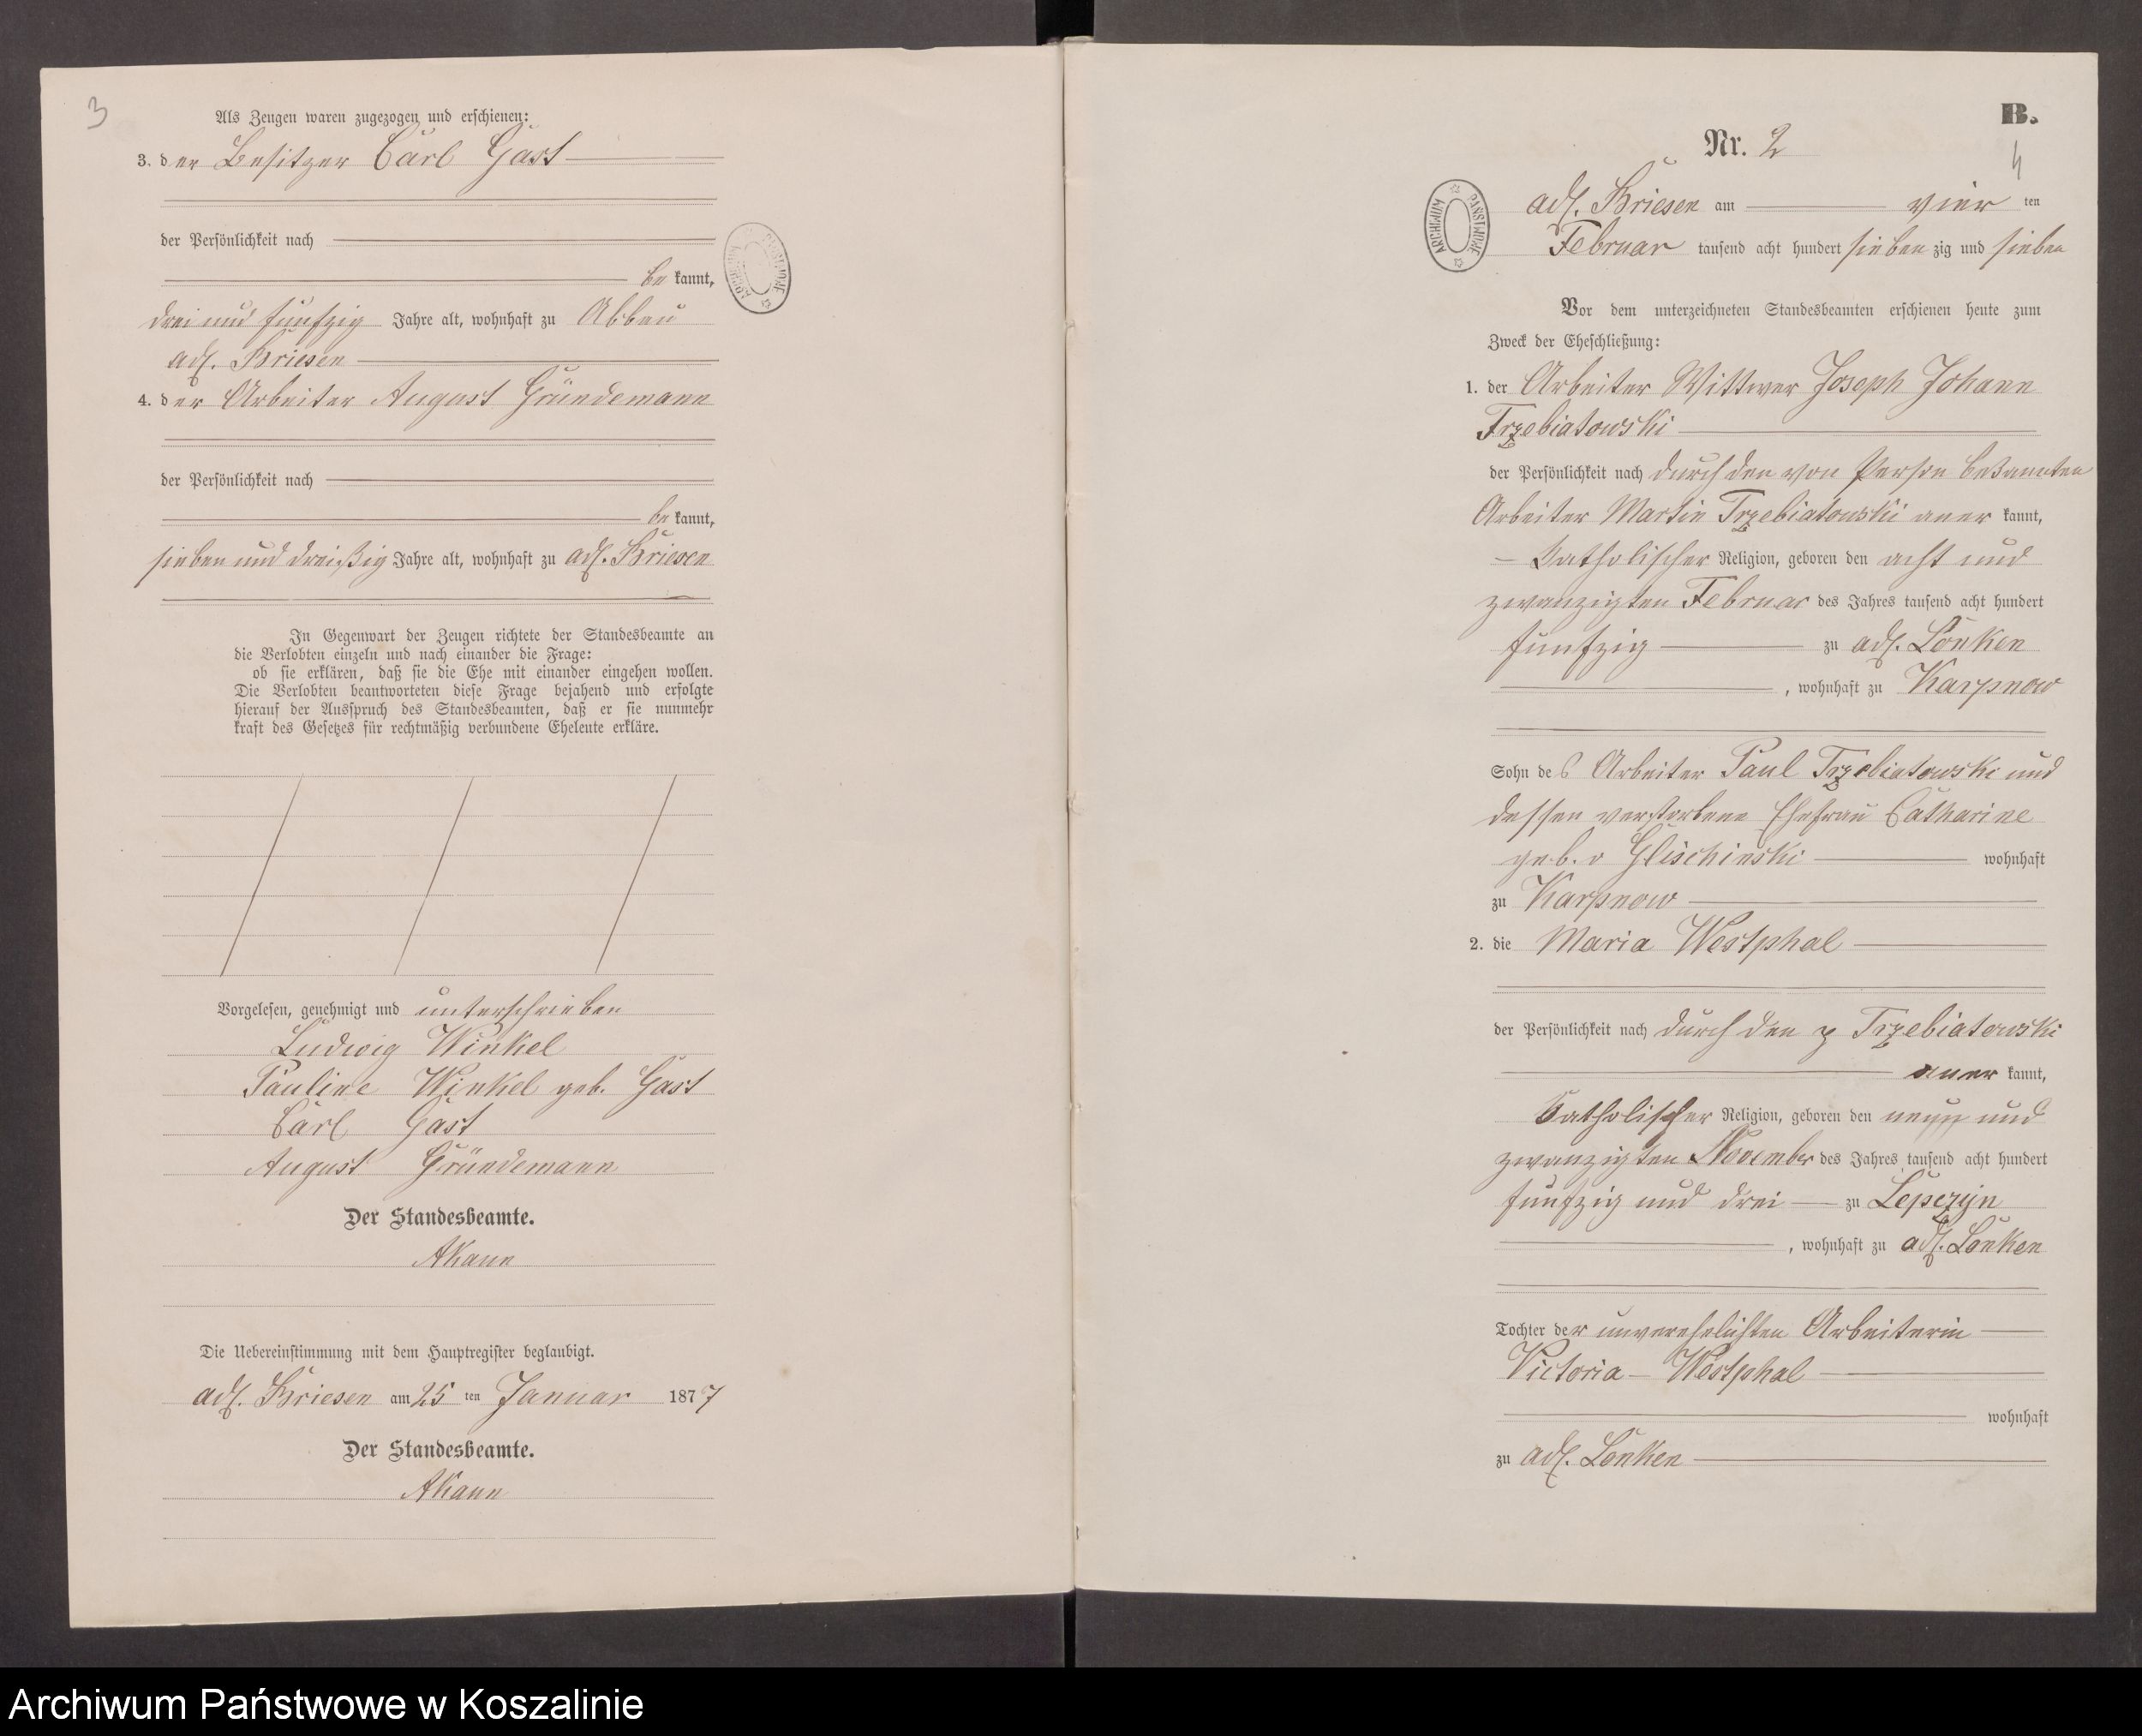 3
Als Zeugen waren zugezogen und erschienen:
3. der Besitzer Carl Gast
der Persönlichkeit nach
bekannt,
drei und fünfzig Jahre alt, wohnhaft zu Abbau
adl. Briesen
4. der Arbeiter August Gründemann
der Persönlichkeit nach
bekannt,
sieben und dreißig Jahre alt, wohnhaft zu adl. Briesen
In Gegenwart der Zeugen richtete der Standesbeamte an
die Verlobten einzeln und nach einander die Frage:
ob sie erklären, daß sie die Ehe mit einander eingehen wollen.
Die Verlobten beantworteten diese Frage bejahend und erfolgte
hierauf der Ausspruch des Standesbeamten, daß er sie nunmehr
kraft des Gesetzes für rechtmäßig verbundene Eheleute erkläre.
Vorgelesen, genehmigt und unterschrieben
Ludwig Winkel
Pauline Winkel geb. Gast
Carl Gast
August Gründemann
Der Standesbeamte.
AKann
Die Uebereinstimmung mit dem Hauptregister beglaubigt.
adl. Briesen am 25 ten Januar 1877
Der Standesbeamte.
AKann
ARCHIWUM PAŃSTWOWE
B.
Nr. 2
4
ARCHIWUM PAŃSTWOWE
adl. Briesen am vier ten
Februar tausend acht hundert siebenzig und sieben
Vor dem unterzeichneten Standesbeamten erschienen heute zum
Zweck der Eheschließung:
1. der Arbeiter Wittwer Joseph Johann
Trzebiatowski
der Persönlichkeit nach durch den von Person bekannten
Arbeiter Martin Trzebiatowski anerkannt,
Katholischer Religion, geboren den acht und
zwanzigten Februar des Jahres tausend acht hundert
fünfzig zu adl. Lonken
, wohnhaft zu Karpnow
Sohn des Arbeiter Paul Trzebiatowski und
dessen verstorbene Ehefrau Catharine
geb. v Glischinski wohnhaft
zu Karpnow
2. die Maria Westphal
der Persönlichkeit nach durch den p Trzebiatowski
anerkannt,
Katholischer Religion, geboren den neun und
zwanzigten November des Jahres tausend acht hundert
fünfzig und drei zu Leperzyn
, wohnhaft zu adl. Lonken
Tochter der unverehelichten Arbeiterin
Victoria Westphal
wohnhaft
zu adl. Lonken
Archiwum Państwowe w Koszalinie